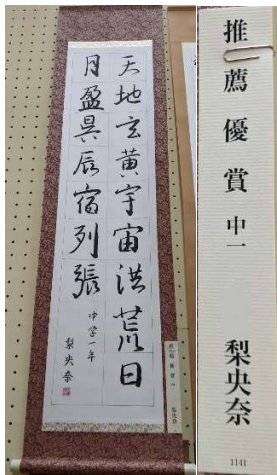 天地玄黄宇宙洪荒日
月盈昃辰宿列張
中学一年
梨央奈
推薦優賞 中一 梨央奈
1141